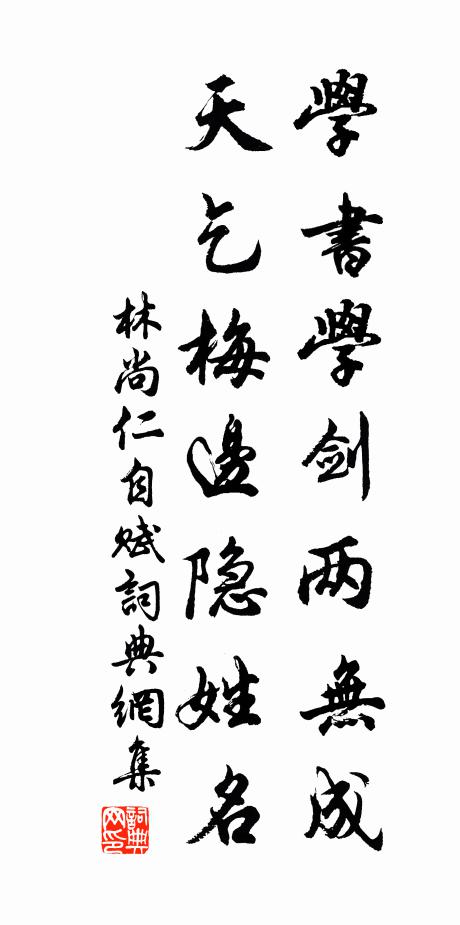 學書學剑两無成
天乞梅邊隐姓名
林尚仁自赋詞典網集
詞典网印